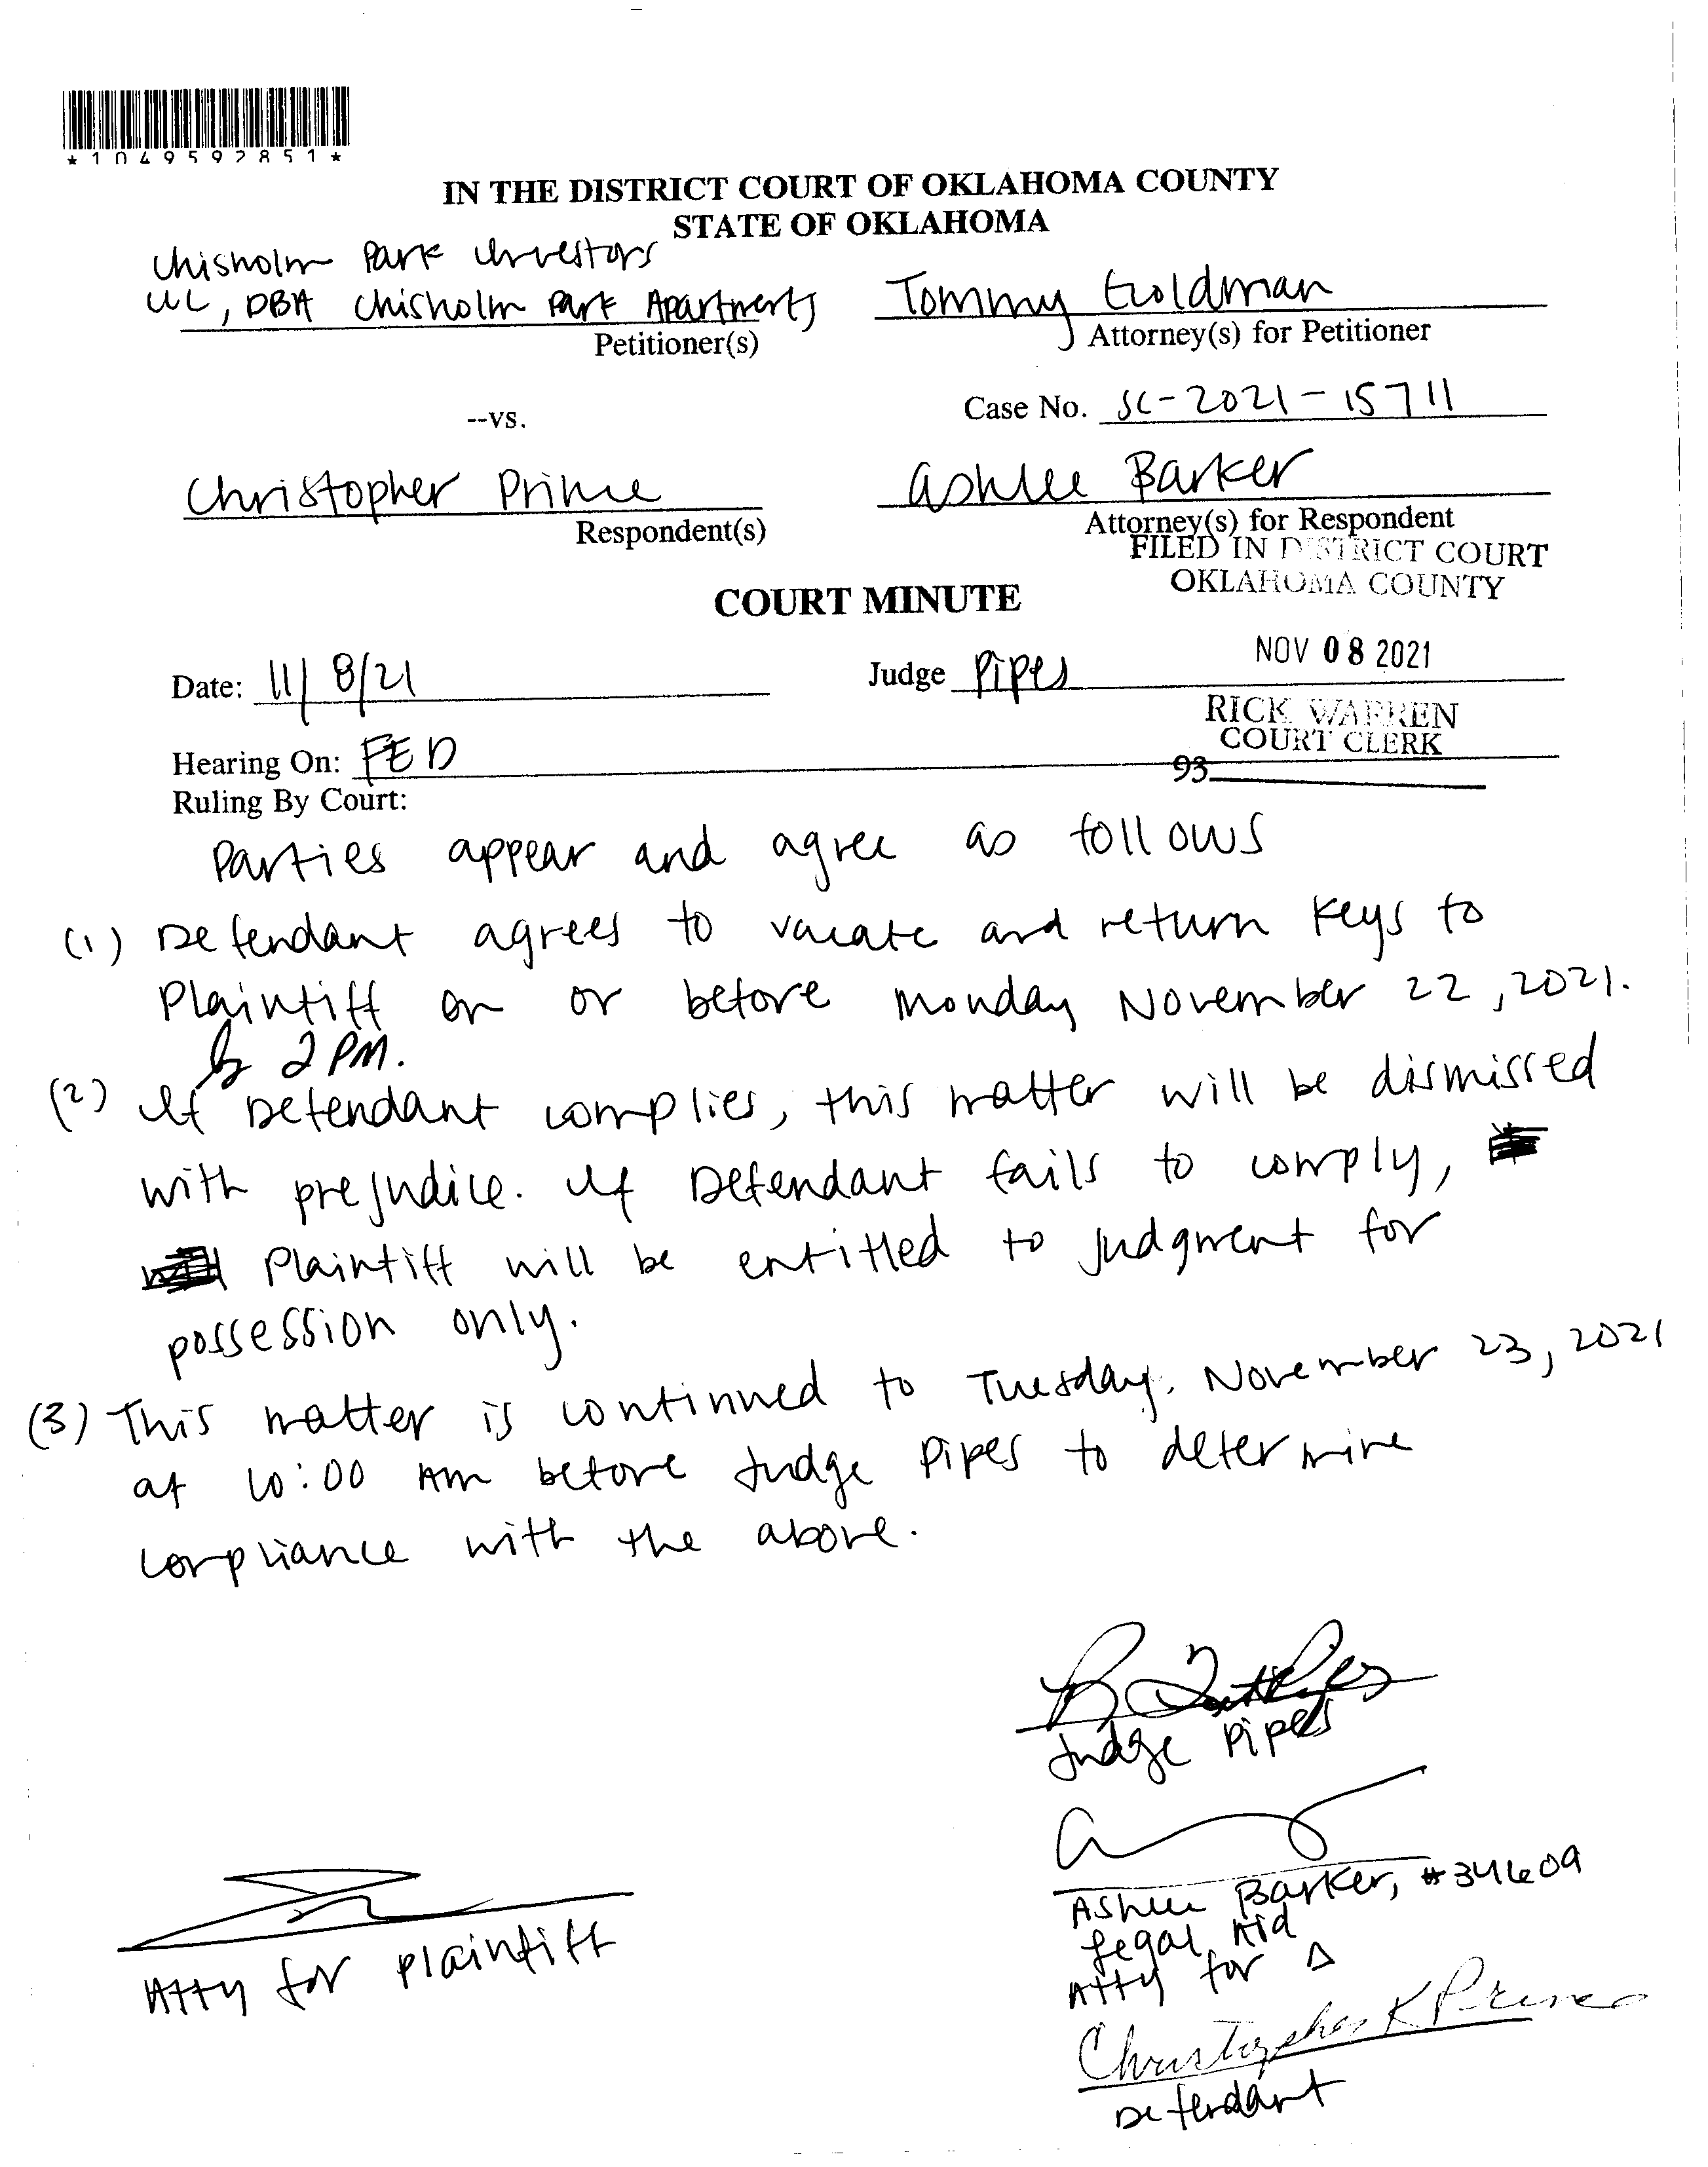 *1049592851*
IN THE DISTRICT COURT OF OKLAHOMA COUNTY
STATE OF OKLAHOMA
Chisholm Park Investors
LLC, DBA Chisholm Park Apartments
Petitioner(s)
Tommy Goldman
Attorney(s) for Petitioner
--vs.
Case No. SC-2021-15711
Christopher Prince
Respondent(s)
Ashlee Barker
Attorney(s) for Respondent
FILED IN DISTRICT COURT
OKLAHOMA COUNTY
COURT MINUTE
NOV 08 2021
Date: 11/8/21
Judge Pipes
RICK WARREN
COURT CLERK
Hearing On: FED
93
Ruling By Court:
Parties appear and agree as follows
(1) Defendant agrees to vacate and return keys to
Plaintiff on or before Monday November 22, 2021.
by 2 PM.
(2) If Defendant complies, this matter will be dismissed
with prejudice. If Defendant fails to comply,
Plaintiff will be entitled to judgment for
possession only.
(3) This matter is continued to Tuesday, November 23, 2021
at 10:00 AM before Judge Pipes to determine
compliance with the above.
Judge Pipes
Ashlee Barker, #34609
Legal Aid
Atty for Δ
Atty for Plaintiff
Christopher K Prince
Defendant